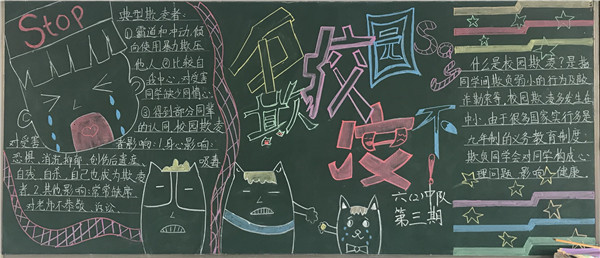 Stop
典型欺凌者:
①霸道和冲动,倾
向使用暴力欺压
他人②比较自
我中心,对受害
同学缺少同情心
③得到部分同辈
的认同,校园欺凌
对受害者影响:1.身心影响:
恐惧、消沉抑郁、创伤后遗症、吸毒
自残、自杀、自己也成为欺凌
者。2.其他影响:常常缺席
对老师不恭敬、诉讼
校园
欺凌
不
sos
六(2)中队
第三期
什么是校园欺凌?是指
同学间欺负弱小的行为及敲
诈勒索等,校园欺凌多发生在
中小,由于很多国家实行多是
九年制的义务教育制度。
欺负同学会对同学构成心
理问题,影响健康